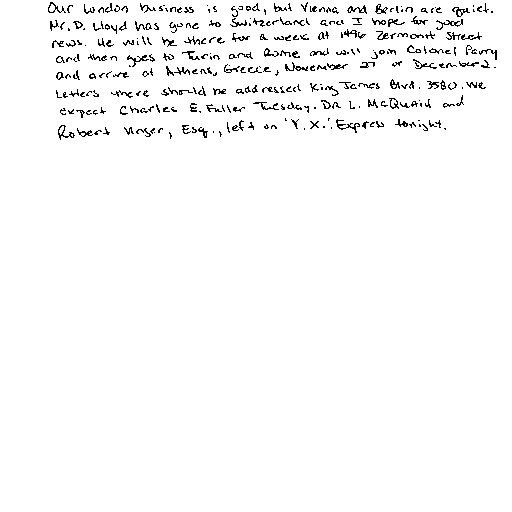 Our London business is good, but Vienna and Berlin are quiet.
Mr. D. Lloyd has gone to Switzerland and I hope for good
news. He will be there for a week at 1496 Zermott Street
and then goes to Turin and Rome and will join Colonel Parry
and arrive at Athens, Greece, November 27 or December 2.
Letters there should be addressed King James Blvd. 3580. We
expect Charles E. Fuller Tuesday. Dr. L. McQuaid and
Robert Unger, Esq., left on 'Y.X.' Express tonight.